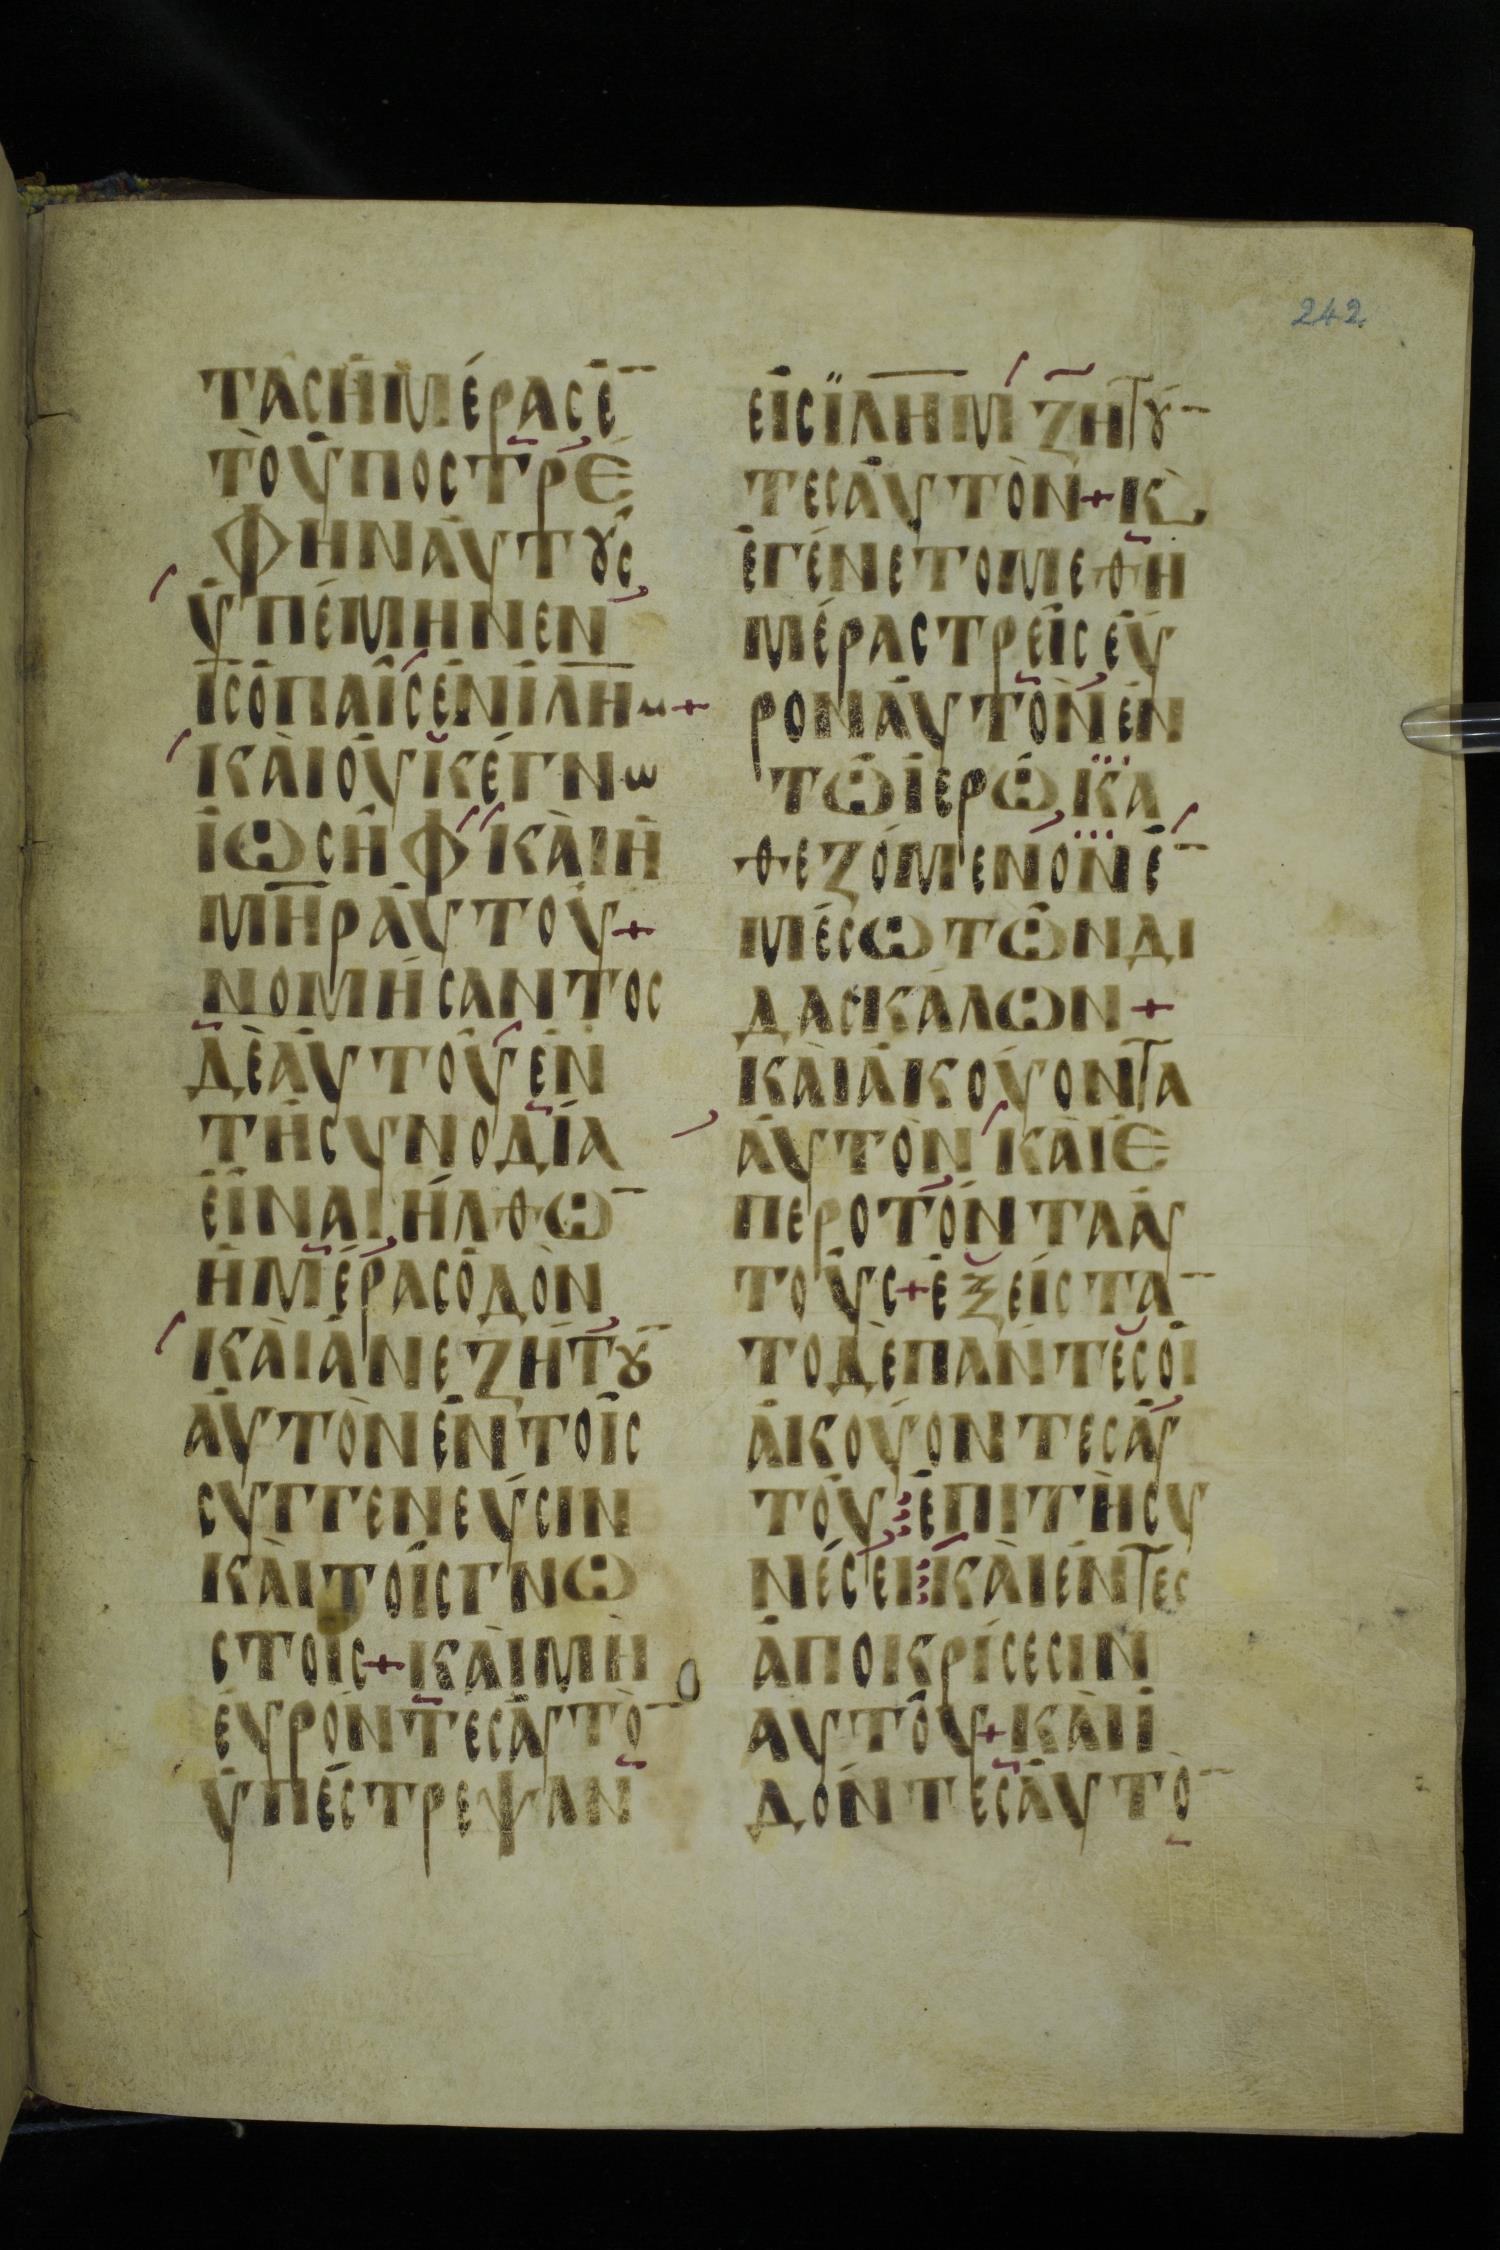 242
ΤΑΣ ΗΜΕΡΑΣ Ε̅
ΤΩ ΥΠΟΣΤΡΕ
ΦΗΝ ΑΥΤΟΥΣ
ΥΠΕΜΗΝΕΝ
ΙΣ Ο ΠΑΙΣ ΕΝ ΙΛΗΜ +
ΚΑΙ ΟΥΚ ΕΓΝΩ
ΙΩΣΗΦ ΚΑΙ Η
ΜΗΡ ΑΥΤΟΥ +
ΝΟΜΗΣΑΝΤΟΣ
ΔΕ ΑΥΤΟΥ ΕΝ
ΤΗ ΣΥΝΟΔΙΑ
ΕΙΝΑΙ ΗΛΘΩ̅
ΗΜΕΡΑΣ ΟΔΟΝ
ΚΑΙ ΑΝΕΖΗΤΟΥ̅
ΑΥΤΟΝ ΕΝ ΤΟΙΣ
ΣΥΓΓΕΝΕΥΣΙΝ
ΚΑΙ ΤΟΙΣ ΓΝΩ
ΣΤΟΙΣ + ΚΑΙ ΜΗ
ΕΥΡΟΝΤΕΣ ΑΥΤΟ̅
ΥΠΕΣΤΡΕΨΑΝ
ΕΙΣ ΙΛΗΜ ΖΗΤΟΥ̅
ΤΕΣ ΑΥΤΟΝ + Κ
ΕΓΕΝΕΤΟ ΜΕΘ Η
ΜΕΡΑΣ ΤΡΕΙΣ ΕΥ
ΡΟΝ ΑΥΤΟΝ ΕΝ
ΤΩ ΙΕΡΩ ΚΑ
ΘΕΖΟΜΕΝΟΝ Ε̅
ΜΕΣΩ ΤΩΝ ΔΙ
ΔΑΣΚΑΛΩΝ +
ΚΑΙ ΑΚΟΥΟΝΤΑ
ΑΥΤΟΝ ΚΑΙ Ε
ΠΕΡΟΤΟΝΤΑ ΑΥ
ΤΟΥΣ + ΕΞΕΙΣΤΑ̅
ΤΟ ΔΕ ΠΑΝΤΕΣ ΟΙ
ΑΚΟΥΟΝΤΕΣ ΑΥ
ΤΟΥ ΕΠΙ ΤΗ ΣΥ
ΝΕΣΕΙ ΚΑΙ ΕΝ ΤΕΣ
ΑΠΟΚΡΙΣΕΣΙΝ
ΑΥΤΟΥ + ΚΑΙ Ι
ΔΟΝΤΕΣ ΑΥΤΟ̅